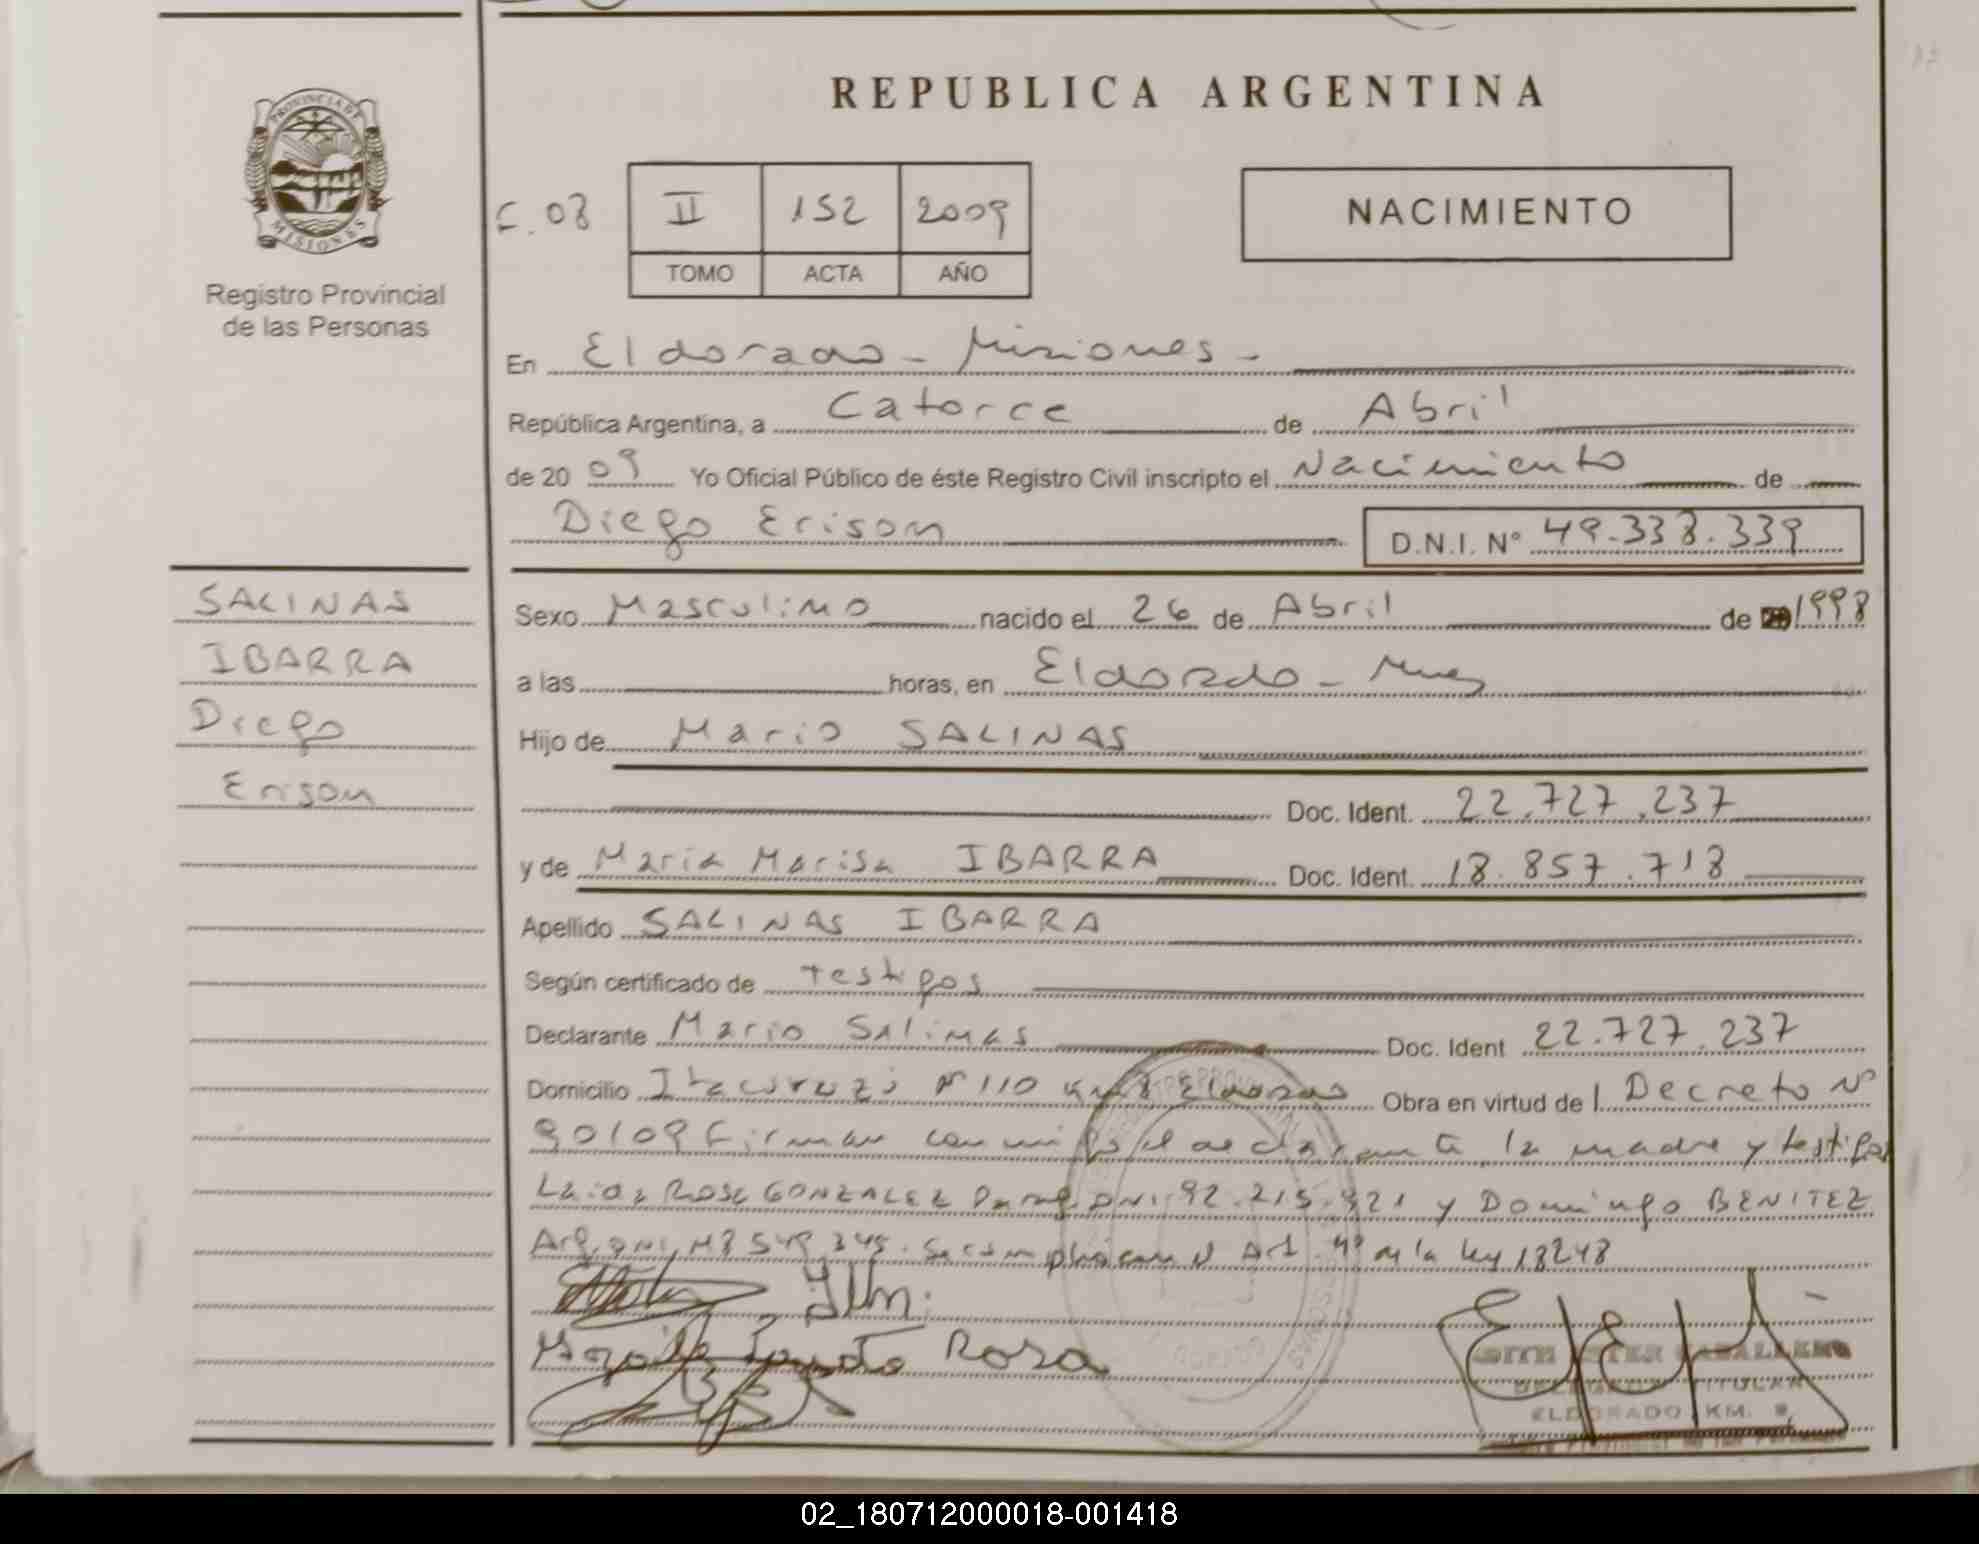 REPUBLICA ARGENTINA
PROVINCIA DE
MISIONES
Registro Provincial
de las Personas
F. 08
II 152 2009
TOMO ACTA AÑO
NACIMIENTO
En Eldorado - Misiones -
República Argentina, a Catorce de Abril
de 20 09 Yo Oficial Público de éste Registro Civil inscripto el Nacimiento de
Diego Erison D.N.I. Nº 49.338.339
SALINAS
IBARRA
Diego
Erison
Sexo Masculino nacido el 26 de Abril de 1998
a las horas, en Eldorado - Mnes
Hijo de Mario SALINAS
Doc. Ident. 22.727.237
y de María Marisa IBARRA Doc. Ident. 18.857.718
Apellido SALINAS IBARRA
Según certificado de Testigos
Declarante Mario Salinas Doc. Ident 22.727.237
Domicilio Itacuruzú Nº 110 Km 8 Eldorado Obra en virtud de l Decreto Nº
90109 Firman conmigo el declarante la madre y testigos
GONZALEZ Parag. DNI 92.215.921 y Domingo BENITEZ
Arg. DNI M8549345. Se cumplió con el Art. 4º de la ley 18248
Rosa
EDITH ESTER CABALLERO
DELEGADA TITULAR
ELDORADO KM. 8
02_180712000018-001418